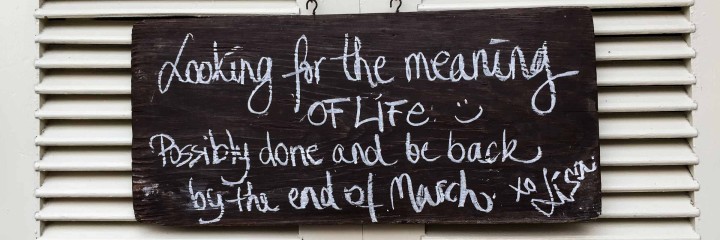 Looking for the meaning
OF LiFe :)
Possibly done and be back
by the end of March. xo Lisa